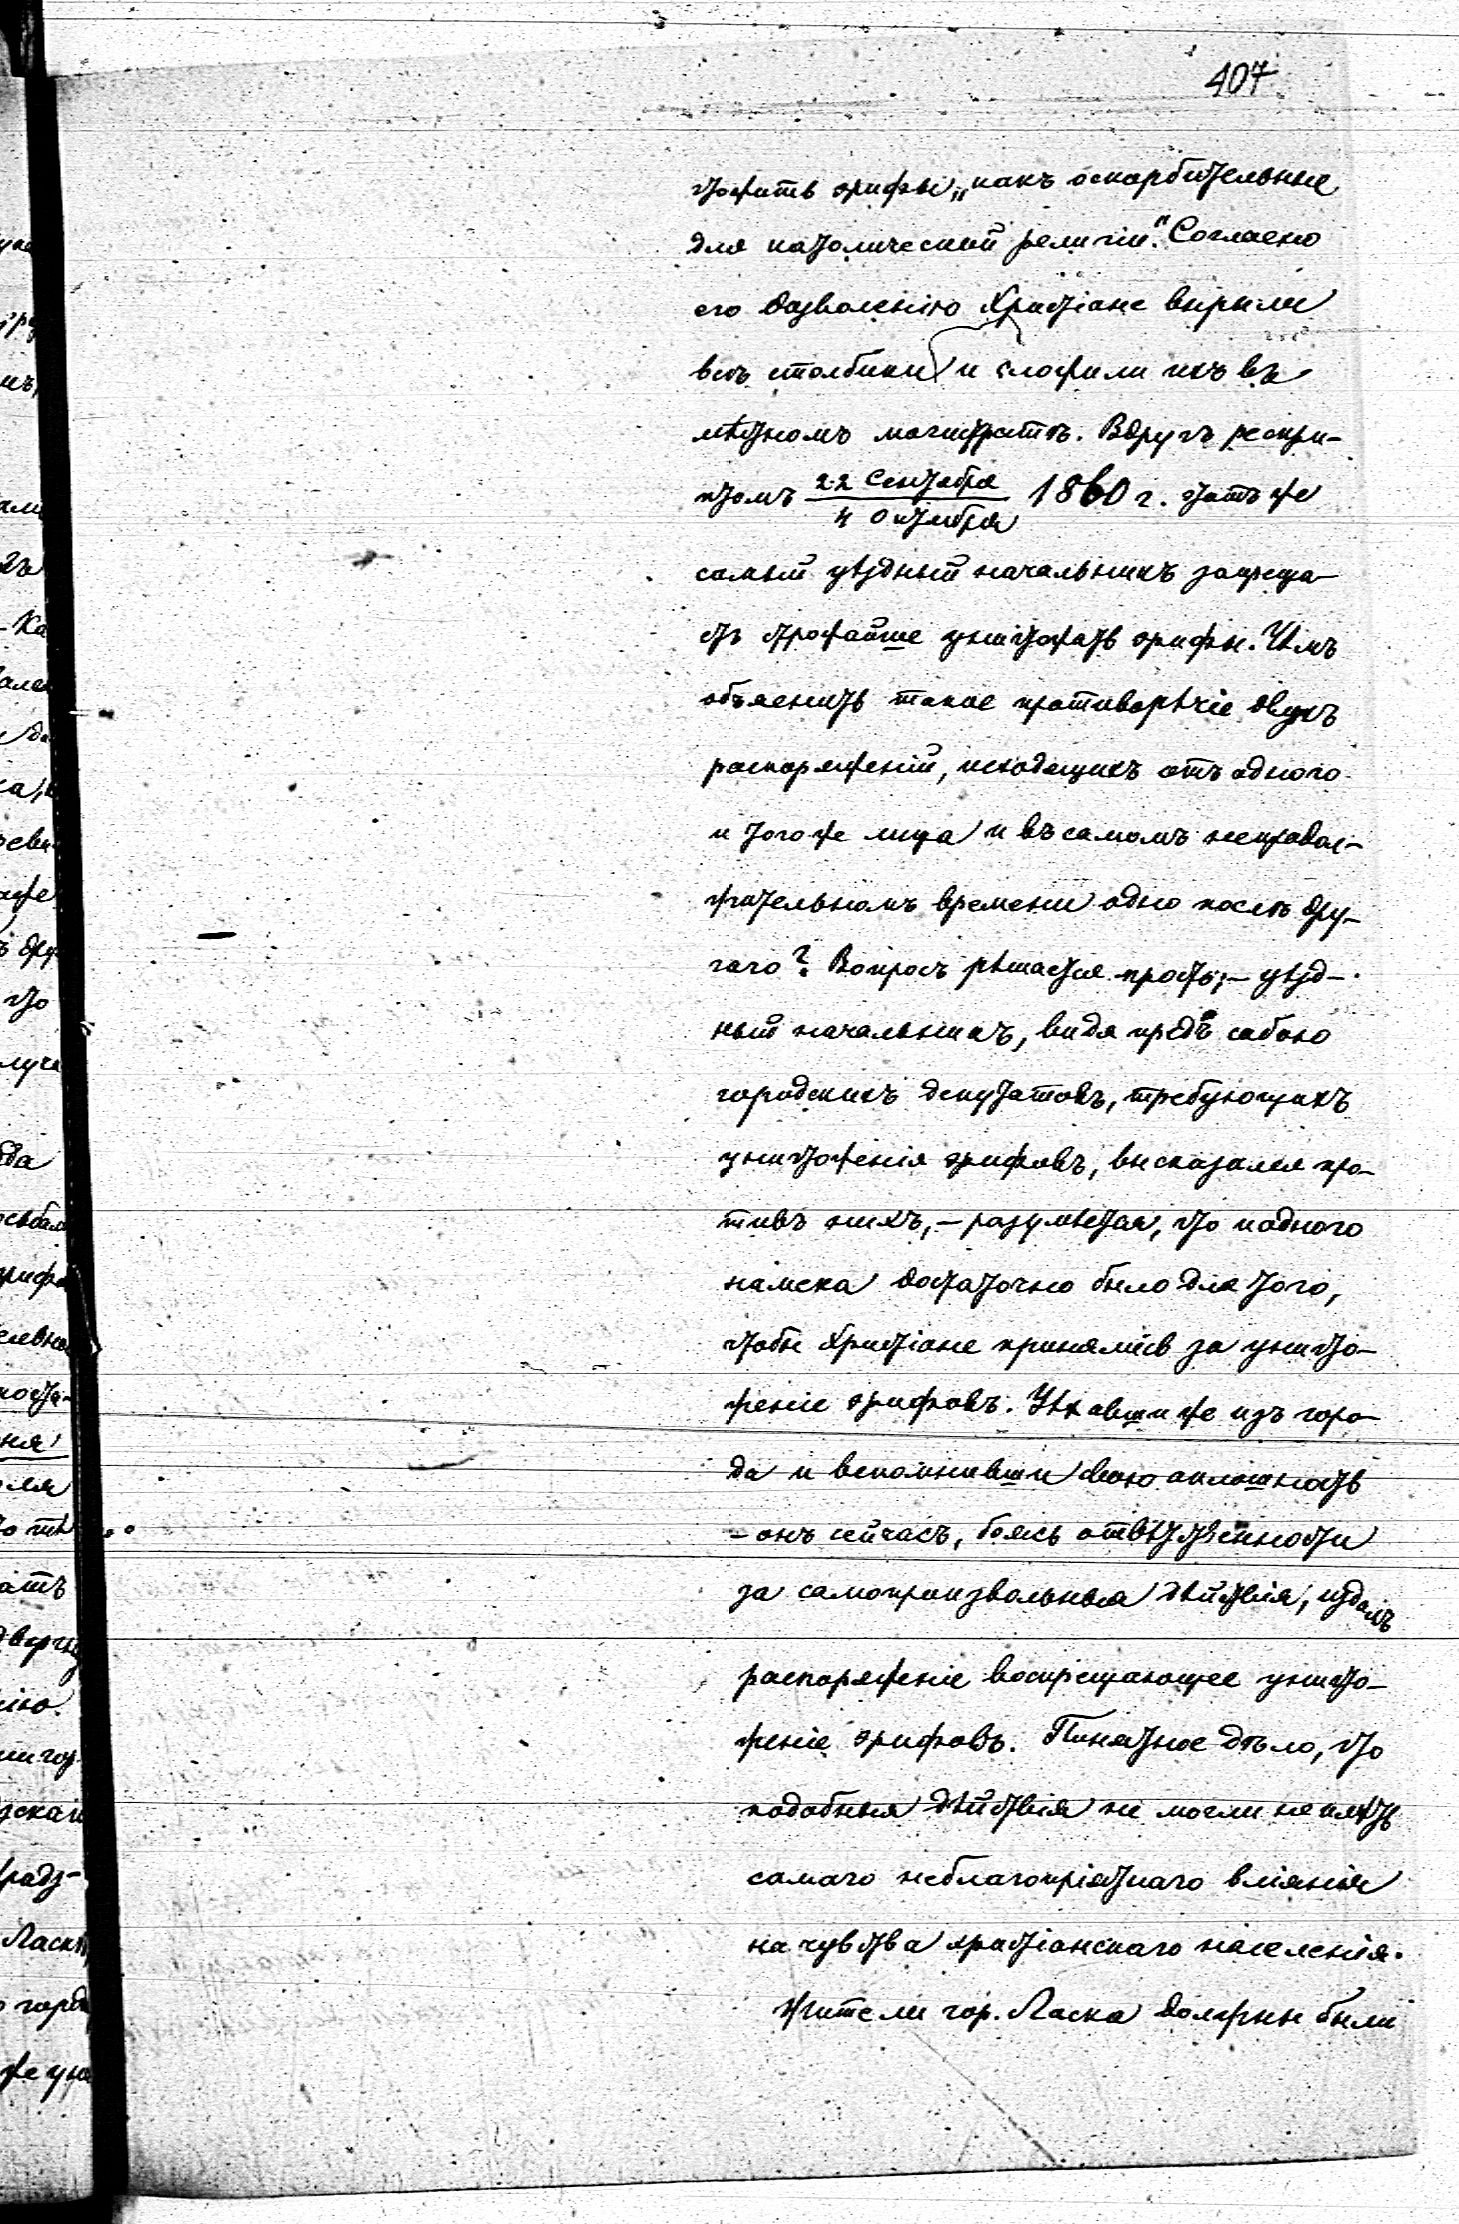 407
чтожить эрифы „какъ оскорбительные
для католической религіи“. Согласно
его дозволенію Христіане вырыли
всѣ столбики и сложили ихъ въ
мѣстномъ магистратѣ. Вдругъ рескри-
птомъ 22 Сентября / 4 Октября 1860 г. тотъ же
самый уѣздный начальникъ запреща-
етъ строжайше уничтожать эрифы. Чѣмъ
объяснить такое противорѣчіе двухъ
распоряженій, исходящихъ отъ одного
и того же лица и въ самомъ непродол-
жительномъ времени одно послѣ дру-
гаго? Вопросъ рѣшается просто; – уѣзд-
ный начальникъ, видя предъ собою
городскихъ депутатовъ, требующихъ
уничтоженія эрифовъ, высказался про-
тивъ нихъ, – разумѣется, что и одного
намека достаточно было для того,
чтобы Христіане принялись за уничто-
женіе эрифовъ. Уѣхавши же изъ горо-
да и вспомнивши свою оплошность
– онъ сейчасъ, боясь отвѣтственности
за самопроизвольныя дѣйствія, издалъ
распоряженіе воспрещающее уничто-
женіе эрифовъ. Понятное дѣло, что
подобныя дѣйствія не могли не имѣть
самаго неблагопріятнаго вліянія
на чувства христіанскаго населенія.
Жители гор. Ласка должны были